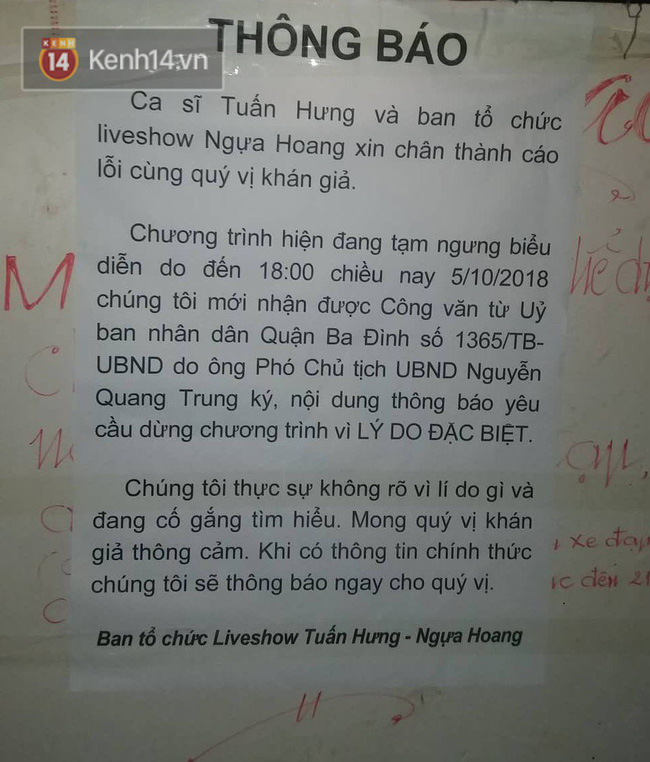 THÔNG BÁO
KENH 14 Kenh14.vn
Ca sĩ Tuấn Hưng và ban tổ chức
liveshow Ngựa Hoang xin chân thành cáo
lỗi cùng quý vị khán giả.
Chương trình hiện đang tạm ngưng biểu
diễn do đến 18:00 chiều nay 5/10/2018
chúng tôi mới nhận được Công văn từ Uỷ
ban nhân dân Quận Ba Đình số 1365/TB-
UBND do ông Phó Chủ tịch UBND Nguyễn
Quang Trung ký, nội dung thông báo yêu
cầu dừng chương trình vì LÝ DO ĐẶC BIỆT.
Chúng tôi thực sự không rõ vì lí do gì và
đang cố gắng tìm hiểu. Mong quý vị khán
giả thông cảm. Khi có thông tin chính thức
chúng tôi sẽ thông báo ngay cho quý vị.
xe đạp
đến
Ban tổ chức Liveshow Tuấn Hưng - Ngựa Hoang